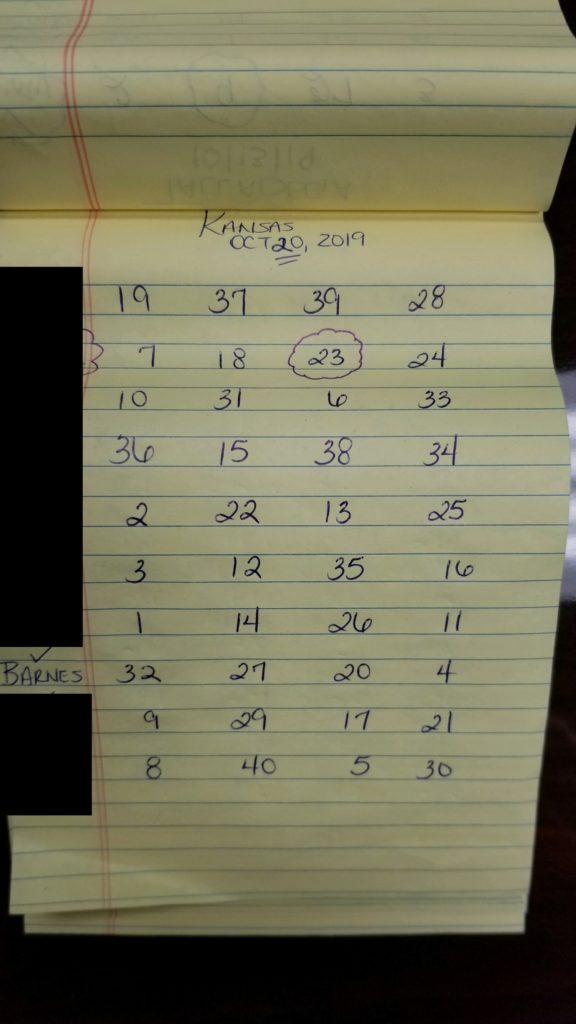 KANSAS
OCT 20, 2019
19 37 39 28
7 18 23 24
10 31 6 33
36 15 38 34
2 22 13 25
3 12 35 16
1 14 26 11
BARNES 32 27 20 4
9 29 17 21
8 40 5 30